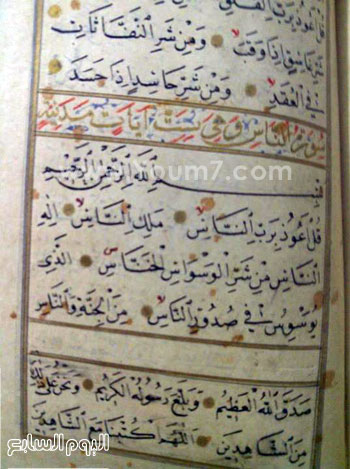 قُلْ أَعُوذُ بِرَبِّ الْفَلَقِ
شَرِّ غَاسِقٍ إِذَا وَقَبَ وَمِنْ شَرِّ النَّفَّاثَاتِ
فِي الْعُقَدِ وَمِنْ شَرِّ حَاسِدٍ إِذَا حَسَدَ
سورة الناس وهي ست آيات مدنية
بِسْمِ اللَّهِ الرَّحْمَنِ الرَّحِيمِ
قُلْ أَعُوذُ بِرَبِّ النَّاسِ مَلِكِ النَّاسِ إِلَهِ
النَّاسِ مِنْ شَرِّ الْوَسْوَاسِ الْخَنَّاسِ الَّذِي
يُوَسْوِسُ فِي صُدُورِ النَّاسِ مِنَ الْجِنَّةِ وَالنَّاسِ
صَدَقَ اللَّهُ الْعَظِيمُ وَبَلَّغَ رَسُولُهُ الْكَرِيمُ وَنَحْنُ عَلَى ذَلِكَ
مِنَ الشَّاهِدِينَ اللَّهُمَّ اكْتُبْنَا مَعَ الشَّاهِدِينَ
اليوم السابع